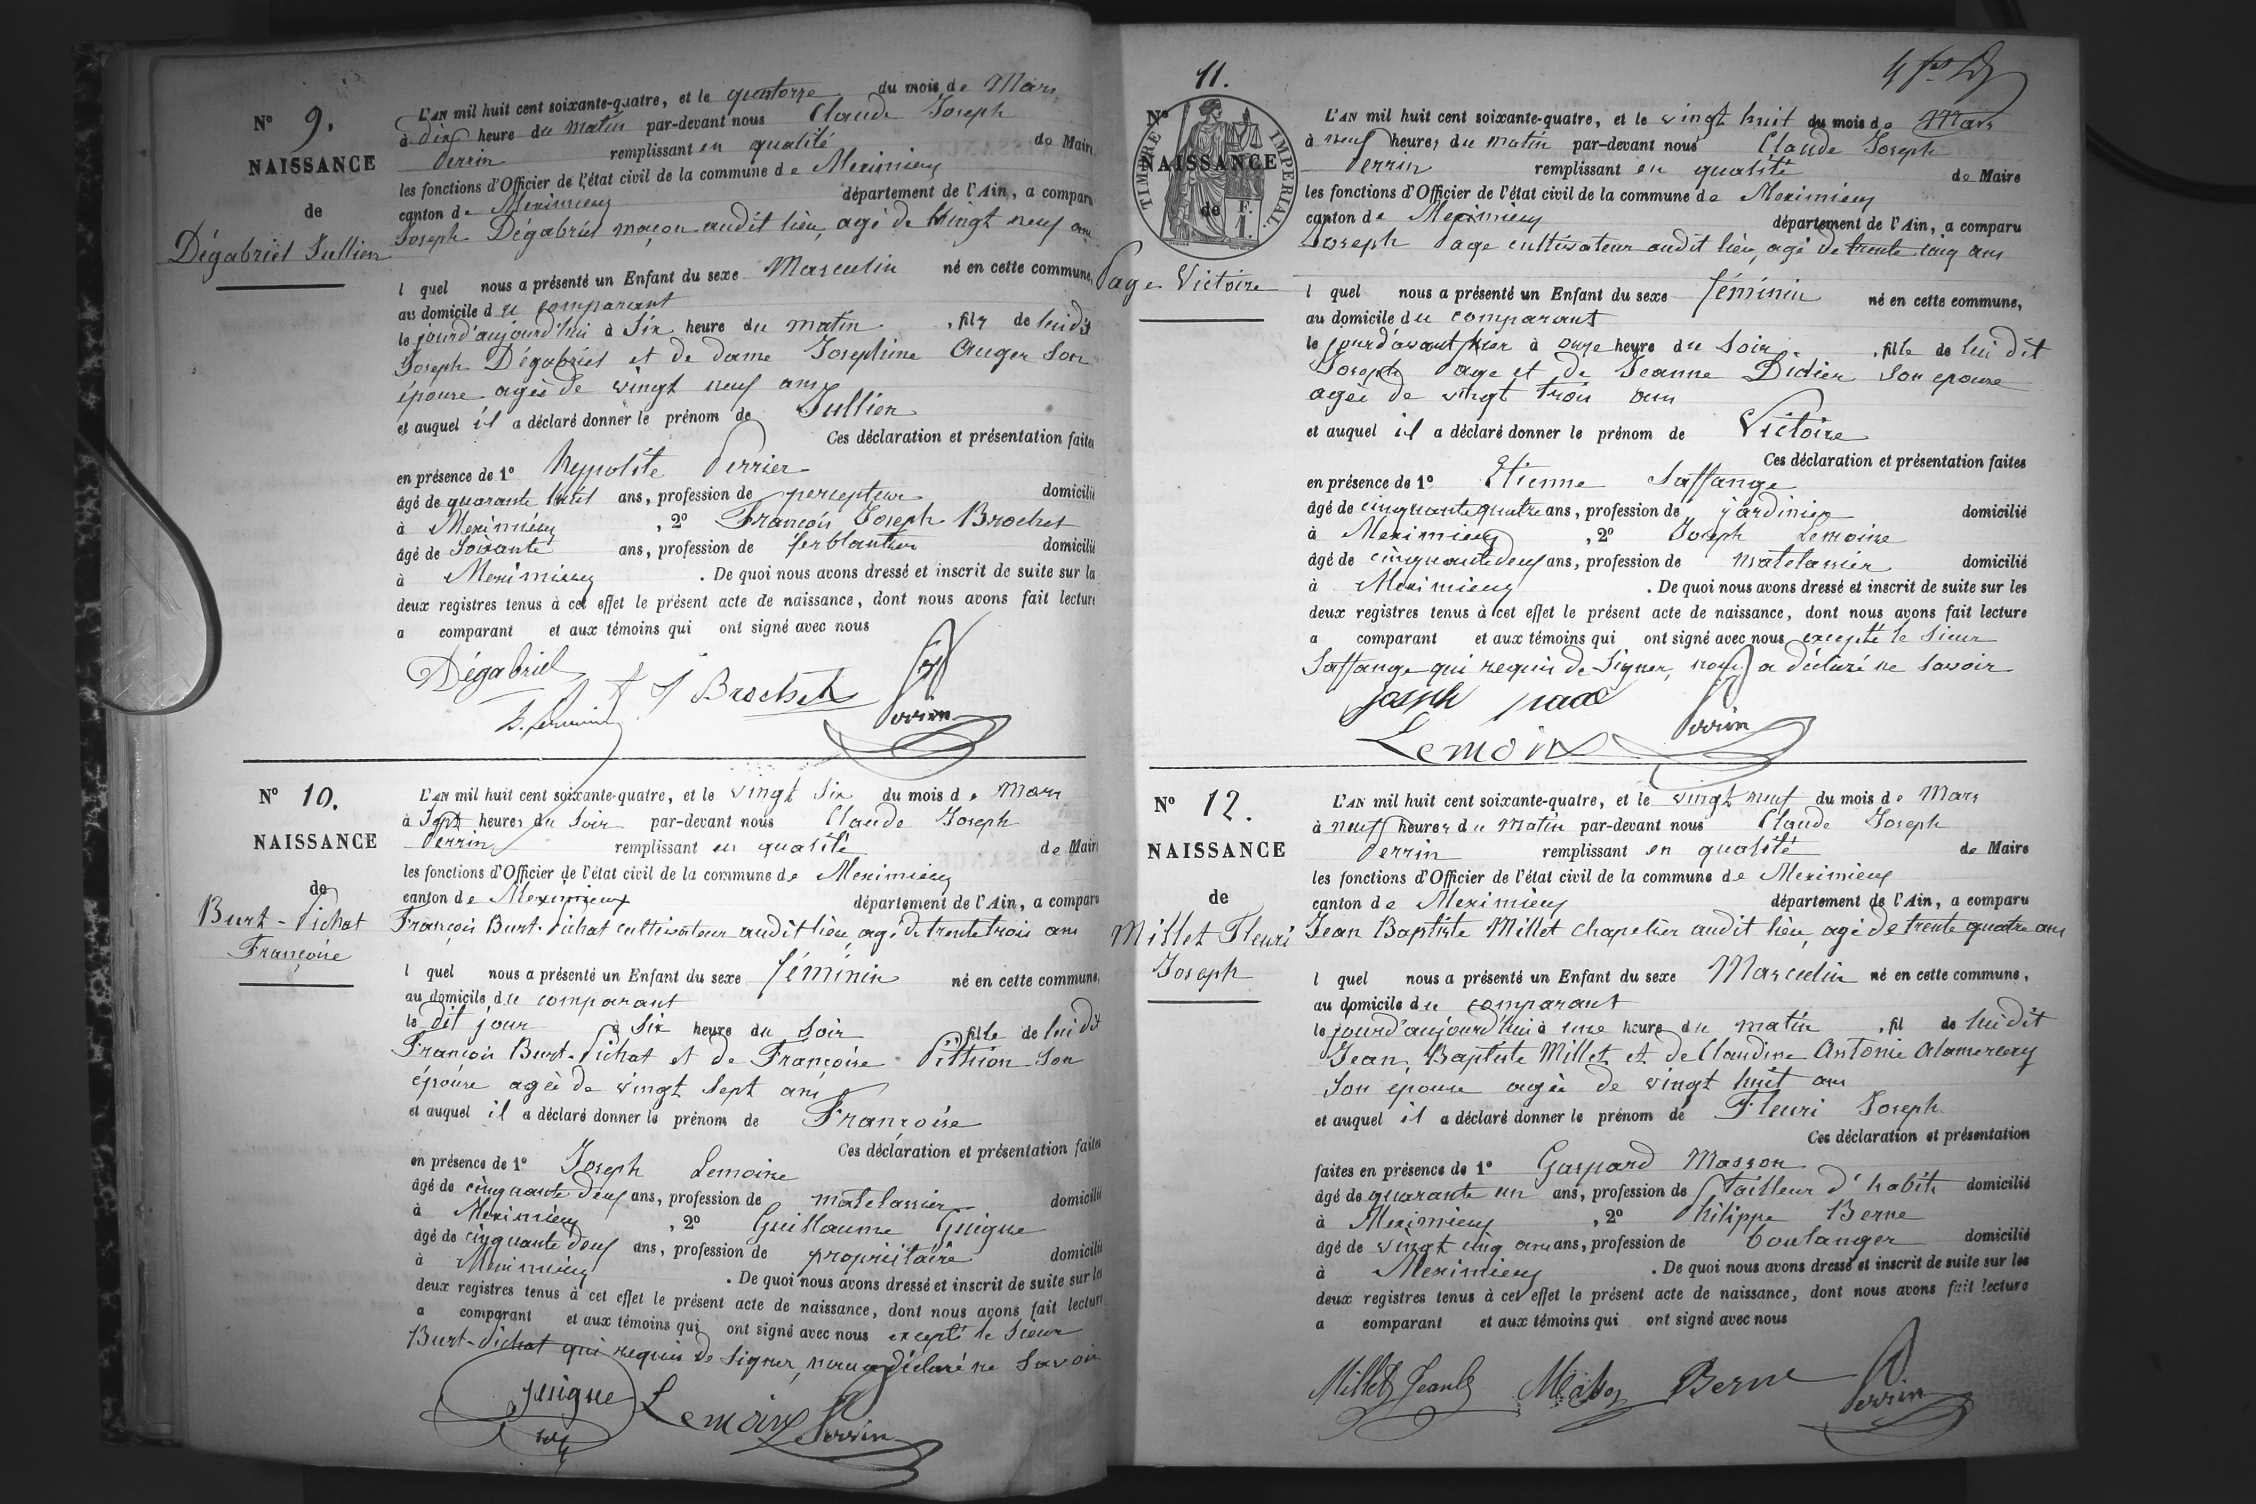 N° 9.
NAISSANCE
de
Dégabriel Jullien
L'AN mil huit cent soixante-quatre, et le quatorze du mois de Mars,
à dix heure du matin par-devant nous Claude Joseph
Perrin remplissant en qualité de Maire
les fonctions d'Officier de l'état civil de la commune de Meximieux
canton de Meximieux département de l'Ain, a comparu
Joseph Dégabriel maçon audit lieu, agé de vingt neuf ans
l quel nous a présenté un Enfant du sexe Masculin né en cette commune,
au domicile du comparant
le jourd'aujourd'hui à six heure du matin, fils de lui dit
Joseph Dégabriel et de dame Josephine Auger son
épouse agée de vingt neuf ans
et auquel il a déclaré donner le prénom de Jullien
Ces déclaration et présentation faites
en présence de 1° hypolite Perrier
âgé de quarante huit ans, profession de percepteur domicilié
à Meximieux, 2° François Joseph Brochet
âgé de soixante ans, profession de ferblantier domicilié
à Meximieux. De quoi nous avons dressé et inscrit de suite sur la
deux registres tenus à cet effet le présent acte de naissance, dont nous avons fait lecture
a comparant et aux témoins qui ont signé avec nous
Dégabriel
J Brochet
Perrin
N° 10.
NAISSANCE
de
Burt-Pichat
Françoise
L'AN mil huit cent soixante-quatre, et le vingt six du mois de Mars
à sept heures du soir par-devant nous Claude Joseph
Perrin remplissant en qualité de Maire
les fonctions d'Officier de l'état civil de la commune de Meximieux
canton de Meximieux département de l'Ain, a comparu
François Burt-Pichat cultivateur audit lieu, agé de trente trois ans
l quel nous a présenté un Enfant du sexe féminin né en cette commune,
au domicile du comparant
le dit jour à six heure du soir, fille de lui dit
François Burt-Pichat et de Françoise Pithion son
épouse agée de vingt sept ans
et auquel il a déclaré donner le prénom de Françoise
Ces déclaration et présentation faites
en présence de 1° Joseph Lemoine
âgé de cinquante deux ans, profession de matelassier domicilié
à Meximieux, 2° Guillaume Guigue
âgé de cinquante deux ans, profession de propriétaire domicilié
à Meximieux. De quoi nous avons dressé et inscrit de suite sur les
deux registres tenus à cet effet le présent acte de naissance, dont nous avons fait lecture
a comparant et aux témoins qui ont signé avec nous excepté le sieur
Burt-Pichat qui requis de signer, nous a déclaré ne savoir
guigue Lemoine Perrin
11.
N°
NAISSANCE
de
TIMBRE IMPERIAL.
F.
1.
Page Victoire
L'AN mil huit cent soixante-quatre, et le vingt huit du mois de Mars
à neuf heures du matin par-devant nous Claude Joseph
Perrin remplissant en qualité de Maire
les fonctions d'Officier de l'état civil de la commune de Meximieux
canton de Meximieux département de l'Ain, a comparu
Joseph Page cultivateur audit lieu, agé de trente cinq ans
l quel nous a présenté un Enfant du sexe féminin né en cette commune,
au domicile du comparant
le jourd'avant hier à onze heure du soir, fille de lui dit
Joseph Page et de Jeanne Didier son epouse
agée de vingt trois ans
et auquel il a déclaré donner le prénom de Victoire
Ces déclaration et présentation faites
en présence de 1° Etienne Saffange
âgé de cinquante quatre ans, profession de jardinier domicilié
à Meximieux, 2° Joseph Lemoine
âgé de cinquante deux ans, profession de matelassier domicilié
à Meximieux. De quoi nous avons dressé et inscrit de suite sur les
deux registres tenus à cet effet le présent acte de naissance, dont nous avons fait lecture
a comparant et aux témoins qui ont signé avec nous excepté le sieur
Saffange qui requis de signer, nous a déclaré ne savoir
joseph page
Perrin
Lemoine
N° 12.
NAISSANCE
de
Millet Fleuri
Joseph
L'AN mil huit cent soixante-quatre, et le vingt neuf du mois de Mars
à neuf heures du matin par-devant nous Claude Joseph
Perrin remplissant en qualité de Maire
les fonctions d'Officier de l'état civil de la commune de Meximieux
canton de Meximieux département de l'Ain, a comparu
Jean Baptiste Millet chapelier audit lieu, agé de trente quatre ans
l quel nous a présenté un Enfant du sexe Masculin né en cette commune,
au domicile du comparant
le jourd'aujourd'hui à une heure du matin, fil de lui dit
Jean Baptiste Millet et de Claudine Antonie Alamercery
son épouse agée de vingt huit ans
et auquel il a déclaré donner le prénom de Fleuri Joseph
Ces déclaration et présentation
faites en présence de 1° Gaspard Masson
âgé de quarante un ans, profession de tailleur d'habits domicilié
à Meximieux, 2° Philippe Berne
âgé de vingt cinq ans ans, profession de boulanger domicilié
à Meximieux. De quoi nous avons dressé et inscrit de suite sur les
deux registres tenus à cet effet le présent acte de naissance, dont nous avons fait lecture
a comparant et aux témoins qui ont signé avec nous
Millet Berne Perrin